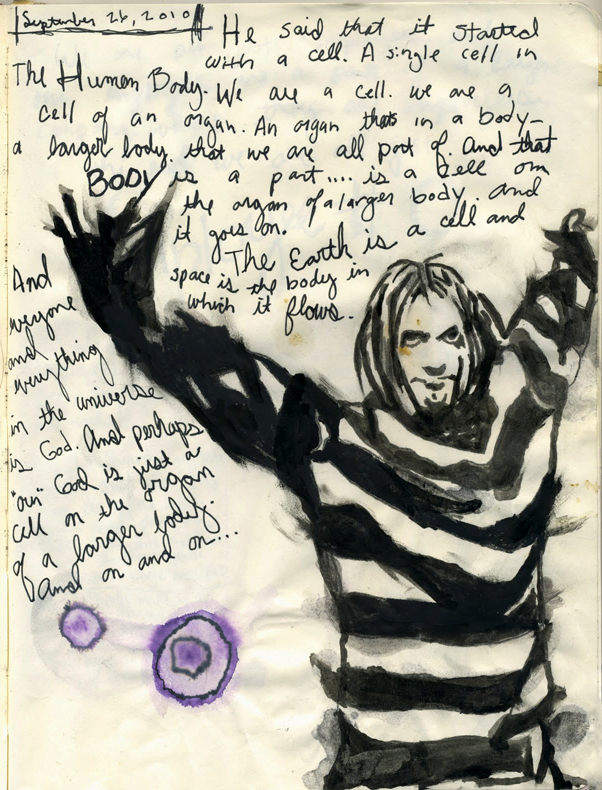 September 26, 2010
He said that it started
with a cell. A single cell in
The Human Body. We are a cell. we are a
cell of an organ. An organ thats in a body-
a larger body. that we are all part of. And that
BODY is a part.... is a cell on
the organ of a larger body. and
it goes on.
The Earth is a cell and
space is the body in
which it flows.
And
everyone
and
everything
in the universe
is God. And perhaps
"our" God is just a
cell on the organ
of a larger body.
and on and on...